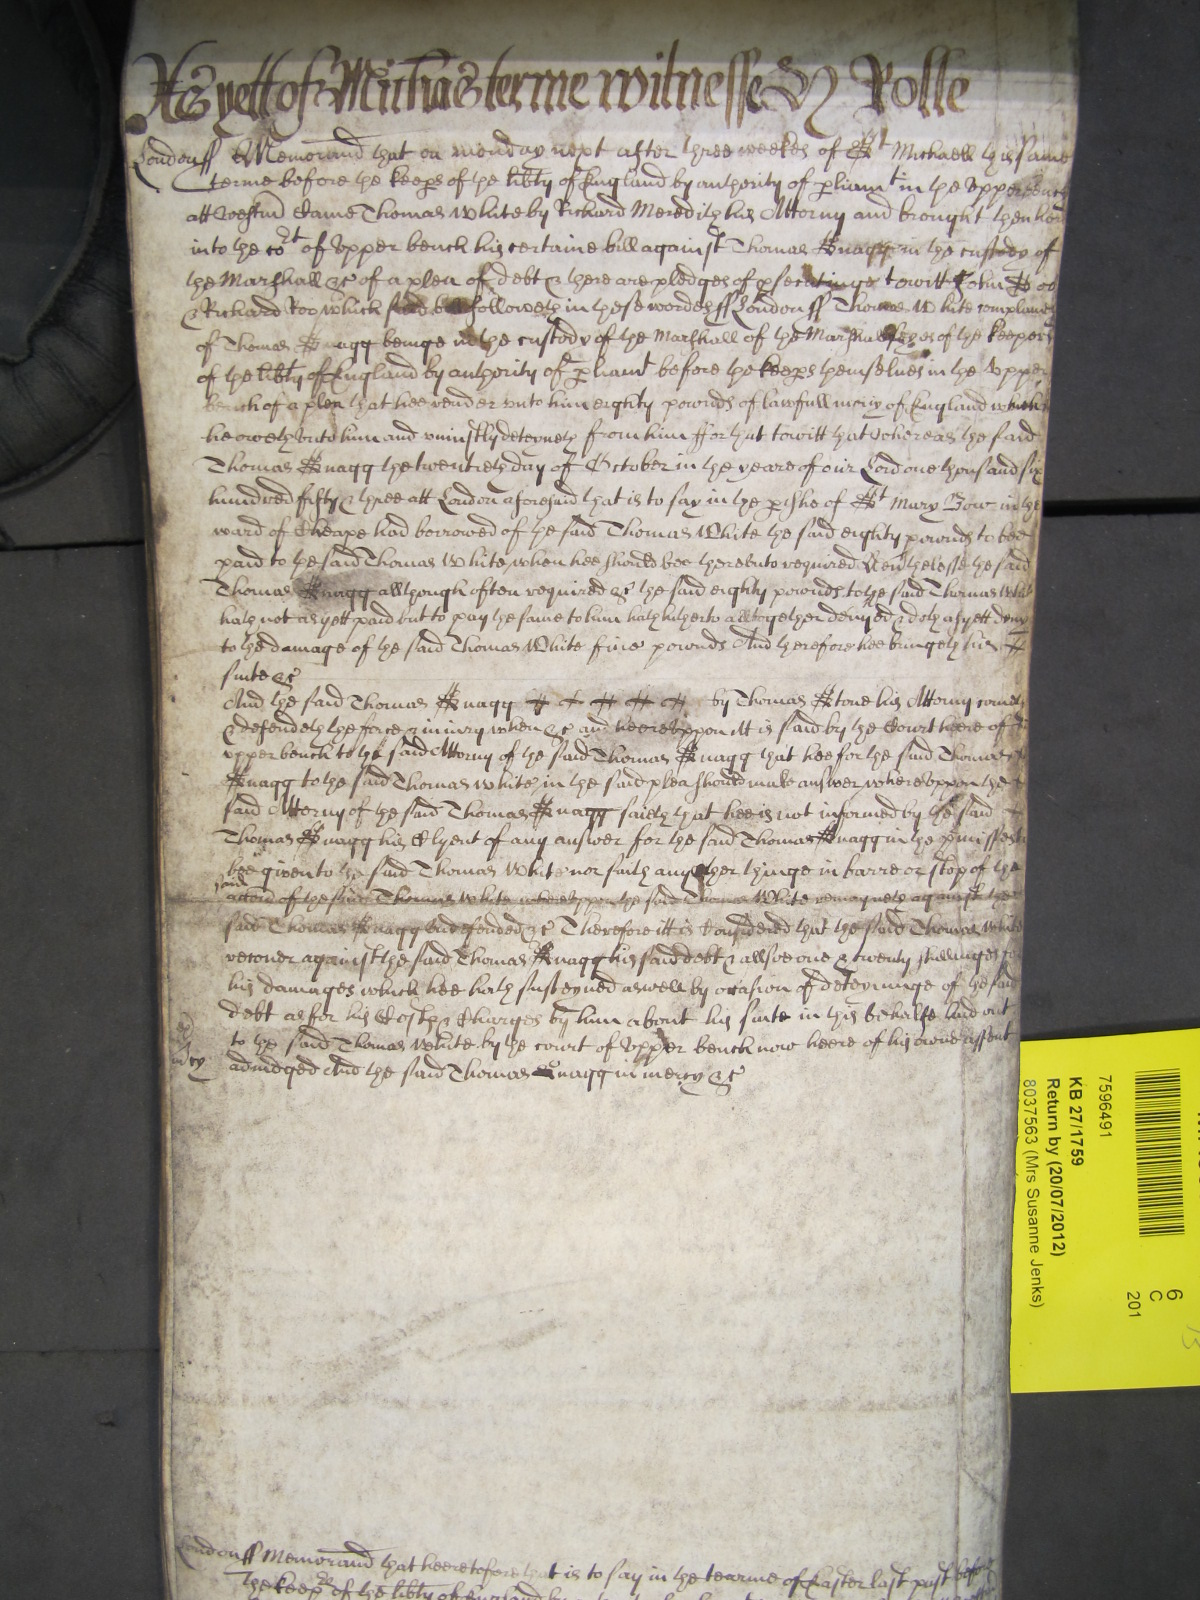 As yett of Mich'as terme witnesse H Rolle
London ss Memorand that on monday next after three weekes of St Michaell this same
terme before the keep's of the lib'ty of England by authority of p'liamt in the Upper bench
att Westm' Came Thomas White by Richard Meredith his Attorny and brought then here
into the cort of Upper bench his certaine bill against Thomas Knagg in the custody of
the Marshall &c of a plea of debt & there are pledges of p'secutinge towitt John Doo
& Richard Roo which said bill followeth in these wordes ss London ss Thomas White complaines
of Thomas Knagg beinge in the custody of the Marshall of the Marshallseyes of the keepers
of the lib'ty of England by authority of p'liamt before the keep's themselues in the Upper
bench of a plea that hee render unto him eighty pownds of lawfull mony of England which
he oweth unto him and uniustly deteyneth from him ffor that towitt that whereas the said
Thomas Knagg the twentieth day of October in the yeare of our Lord one thousand six
hundred fifty & three att London aforesaid that is to say in the p'ishe of St Mary Bow in the
ward of Cheape had borrowed of the said Thomas White the said eighty pownds to bee
paid to the said Thomas White when hee should bee thereunto required Neu'thelesse the said
Thomas Knagg allthough often required &c the said eighty pownds to the said Thomas White
hath not as yett paid but to pay the same to him hath hitherto alltogether denyed & doth as yett deny
to the damage of the said Thomas White fiue pownds And therefore hee bringeth his
suite &c
And the said Thomas Knagg by Thomas Stone his Attorny cometh
& defendeth the force & iniury when &c and heereuppon It is said by the Court heere of the
upper bench to the said Attorny of the said Thomas Knagg that hee for the said Thomas
Knagg to the said Thomas White in the said plea should make answer whereuppon the
said Attorny of the said Thomas Knagg saith that hee is not informed by the said
Thomas Knagg his Clyent of any answer for the said Thomas Knagg in the p'misses to
bee giuen to the said Thomas White nor saith any other thinge in barre or stop of the
said
accon of the said Thomas White whereuppon the said Thomas White remayneth against the
said Thomas Knagg undefended &c Therefore itt is Considered that the said Thomas White
recouer against the said Thomas Knagg his said debt & allsoe one & twenty shillinges for
his damages which hee hath susteyned aswell by occasion of deteyninge of the said
debt as for his Costes & Charges by him about his suite in this behalfe laid out
to the said Thomas White by the court of Upper bench now heere of his owne assent
adiudged And the said Thomas Knagg in mercy &c
mcy
London ss Memorand that heeretofore that is to say in the tearme of Easter last past before
the keep's of the lib'ty of England by
7596491
KB 27/1759
Return by (20/07/2012)
8037563 (Mrs Susanne Jenks)
6
C
201